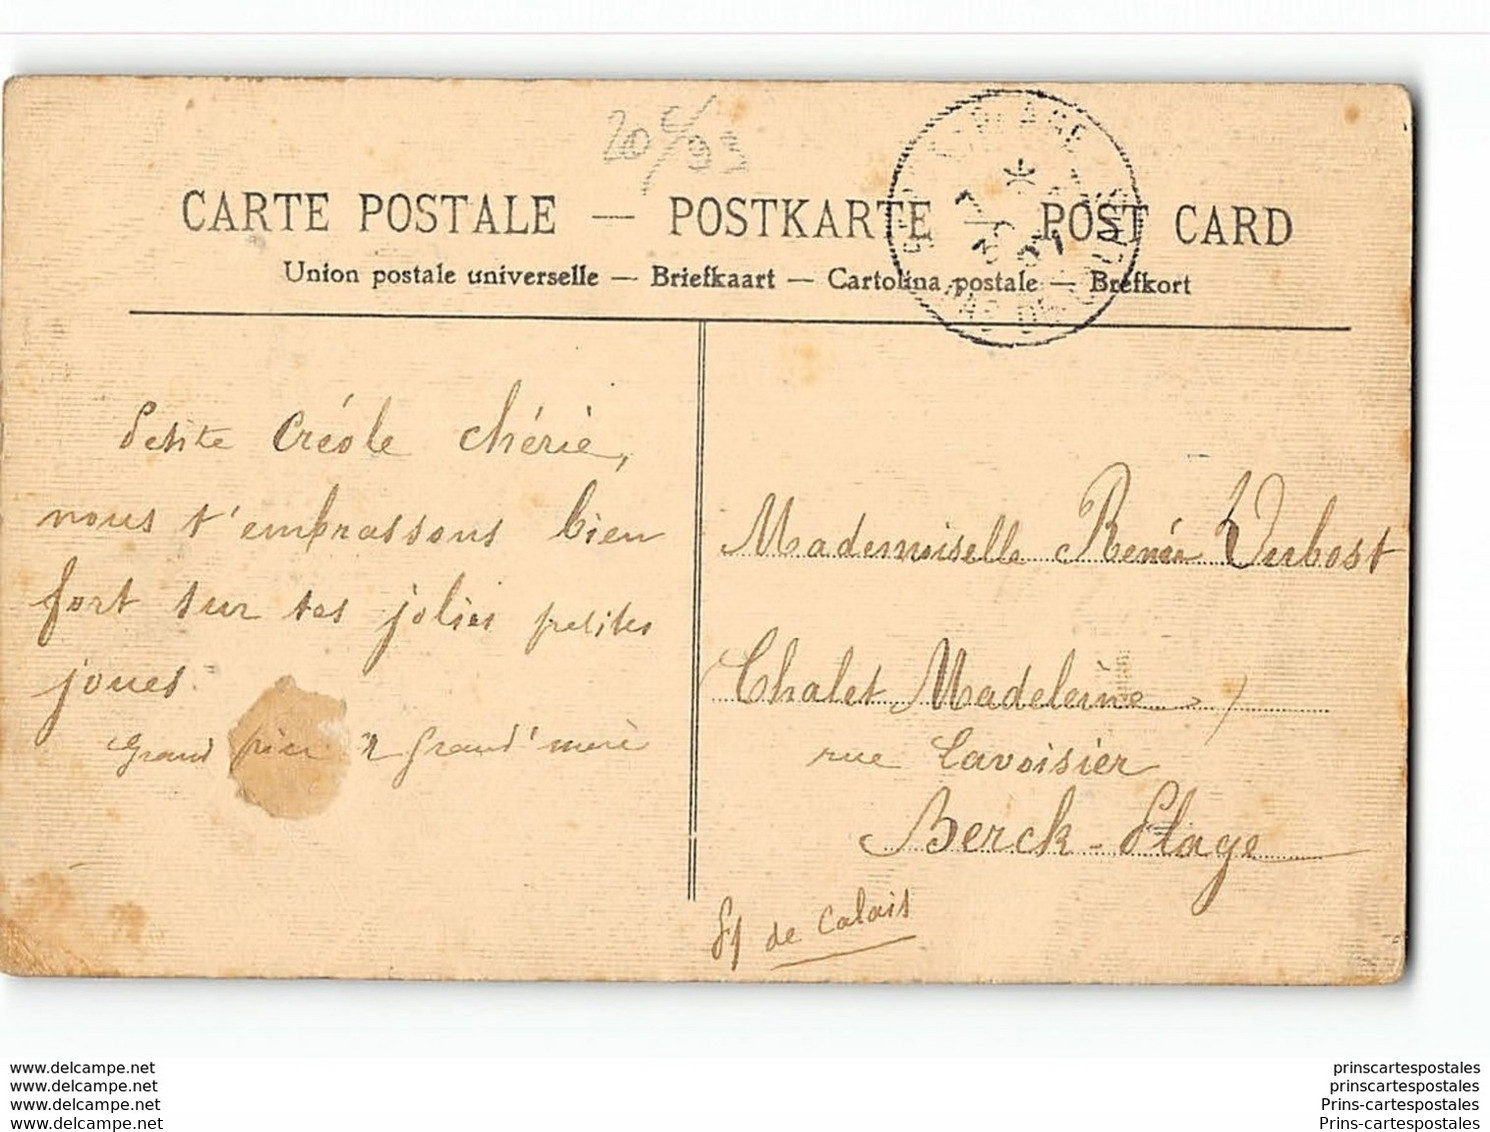 CARTE POSTALE — POSTKARTE — POST CARD
Union postale universelle — Briefkaart — Cartolina postale — Brefkort
Petite Créole chérie,
nous t'embrassons bien
fort sur tes jolies petites
joues.
Grand père & Grand'mère
Mademoiselle Renée Dubost
Chalet Madeleine
rue Lavoisier
Berck-Plage
Pt de Calais
www.delcampe.net
www.delcampe.net
www.delcampe.net
www.delcampe.net
prinscartespostales
prinscartespostales
Prins-cartespostales
Prins-cartespostales